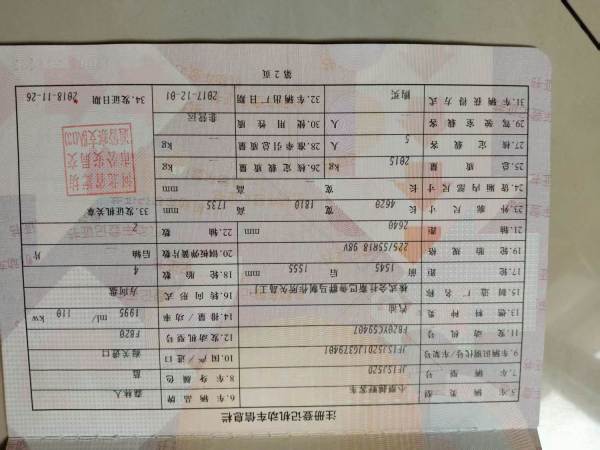 注册登记机动车信息栏
5.车辆类型 小型越野客车 6.车辆品牌 森林人
7.车辆型号 JF1SJ5ZD 8.车身颜色 蓝
9.车辆识别代号/车架号 10.国产/进口 海关进口
11.发动机号 12.发动机型号 FB20
13.燃料种类 汽油 14.排量/功率 1995 ml/ 110 kw
15.制造厂名称 株式会社斯巴鲁群马制作所矢岛工厂 16.转向形式 方向盘
17.轮距 前 1545 后 1555 mm 18.轮胎数 4
19.轮胎规格 225/55R18 98V 20.钢板弹簧片数 后轴 片
21.轴距 2640 mm 22.轴数 2
23.外廓尺寸 长 4620 宽 1810 高 1735 mm 33.发证机关章
24.货厢内部尺寸 长 宽 高 mm
25.总质量 2015 kg 26.核定载质量 kg
27.核定载客 5 人 28.准牵引总质量 kg
29.驾驶室载客 人 30.使用性质 非营运
31.车辆获得方式 购买 32.车辆出厂日期 2017-12-01 34.发证日期 2018-11-26
第 2 页